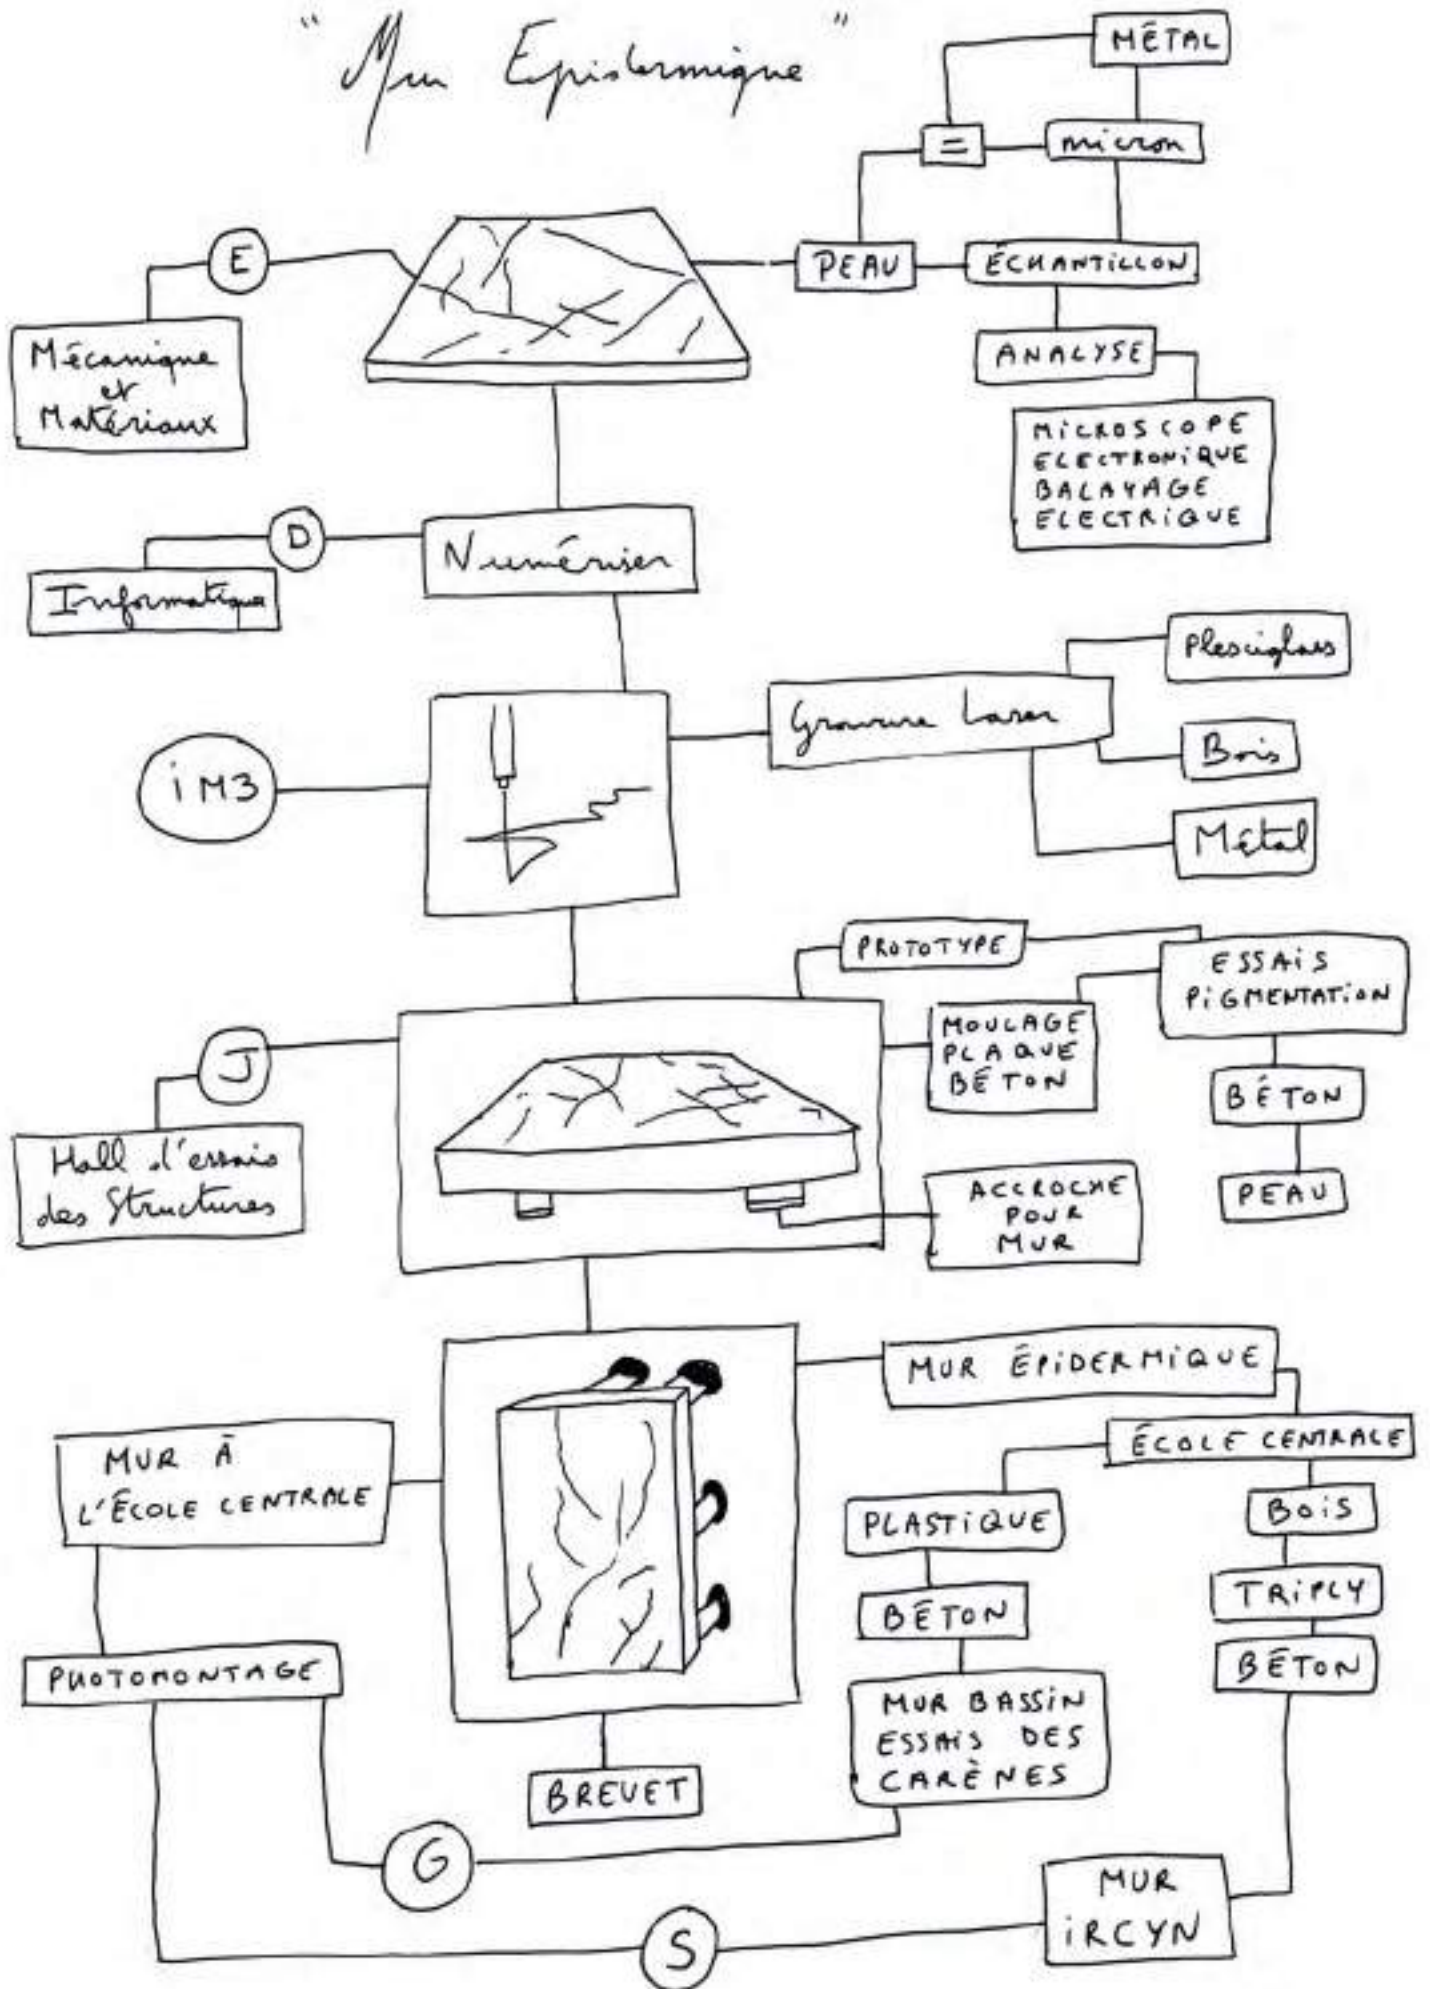 " Mur Epidermique "
MÉTAL
=
micron
E
PEAU
ÉCHANTILLON
Mécanique
et
Matériaux
ANALYSE
MiCROSCOPE
ELECTRONiQUE
BALAYAGE
ELECTRIQUE
D
Numériser
Informatique
Plesciglass
Gravure Laser
Bois
iM3
Métal
PROTOTYPE
ESSAiS
PiGMENTATiON
MOULAGE
PLAQUE
BÉTON
J
BÉTON
Hall d'essais
des Structures
ACCROCHE
POUR
MUR
PEAU
MUR ÉPiDERMiQUE
MUR À
L'ÉCOLE CENTRALE
ÉCOLE CENTRALE
PLASTiQUE
BOiS
BÉTON
TRiPLY
BÉTON
PHOTOMONTAGE
MUR BASSiN
ESSAiS DES
CARÈNES
BREVET
G
MUR
iRCYN
S